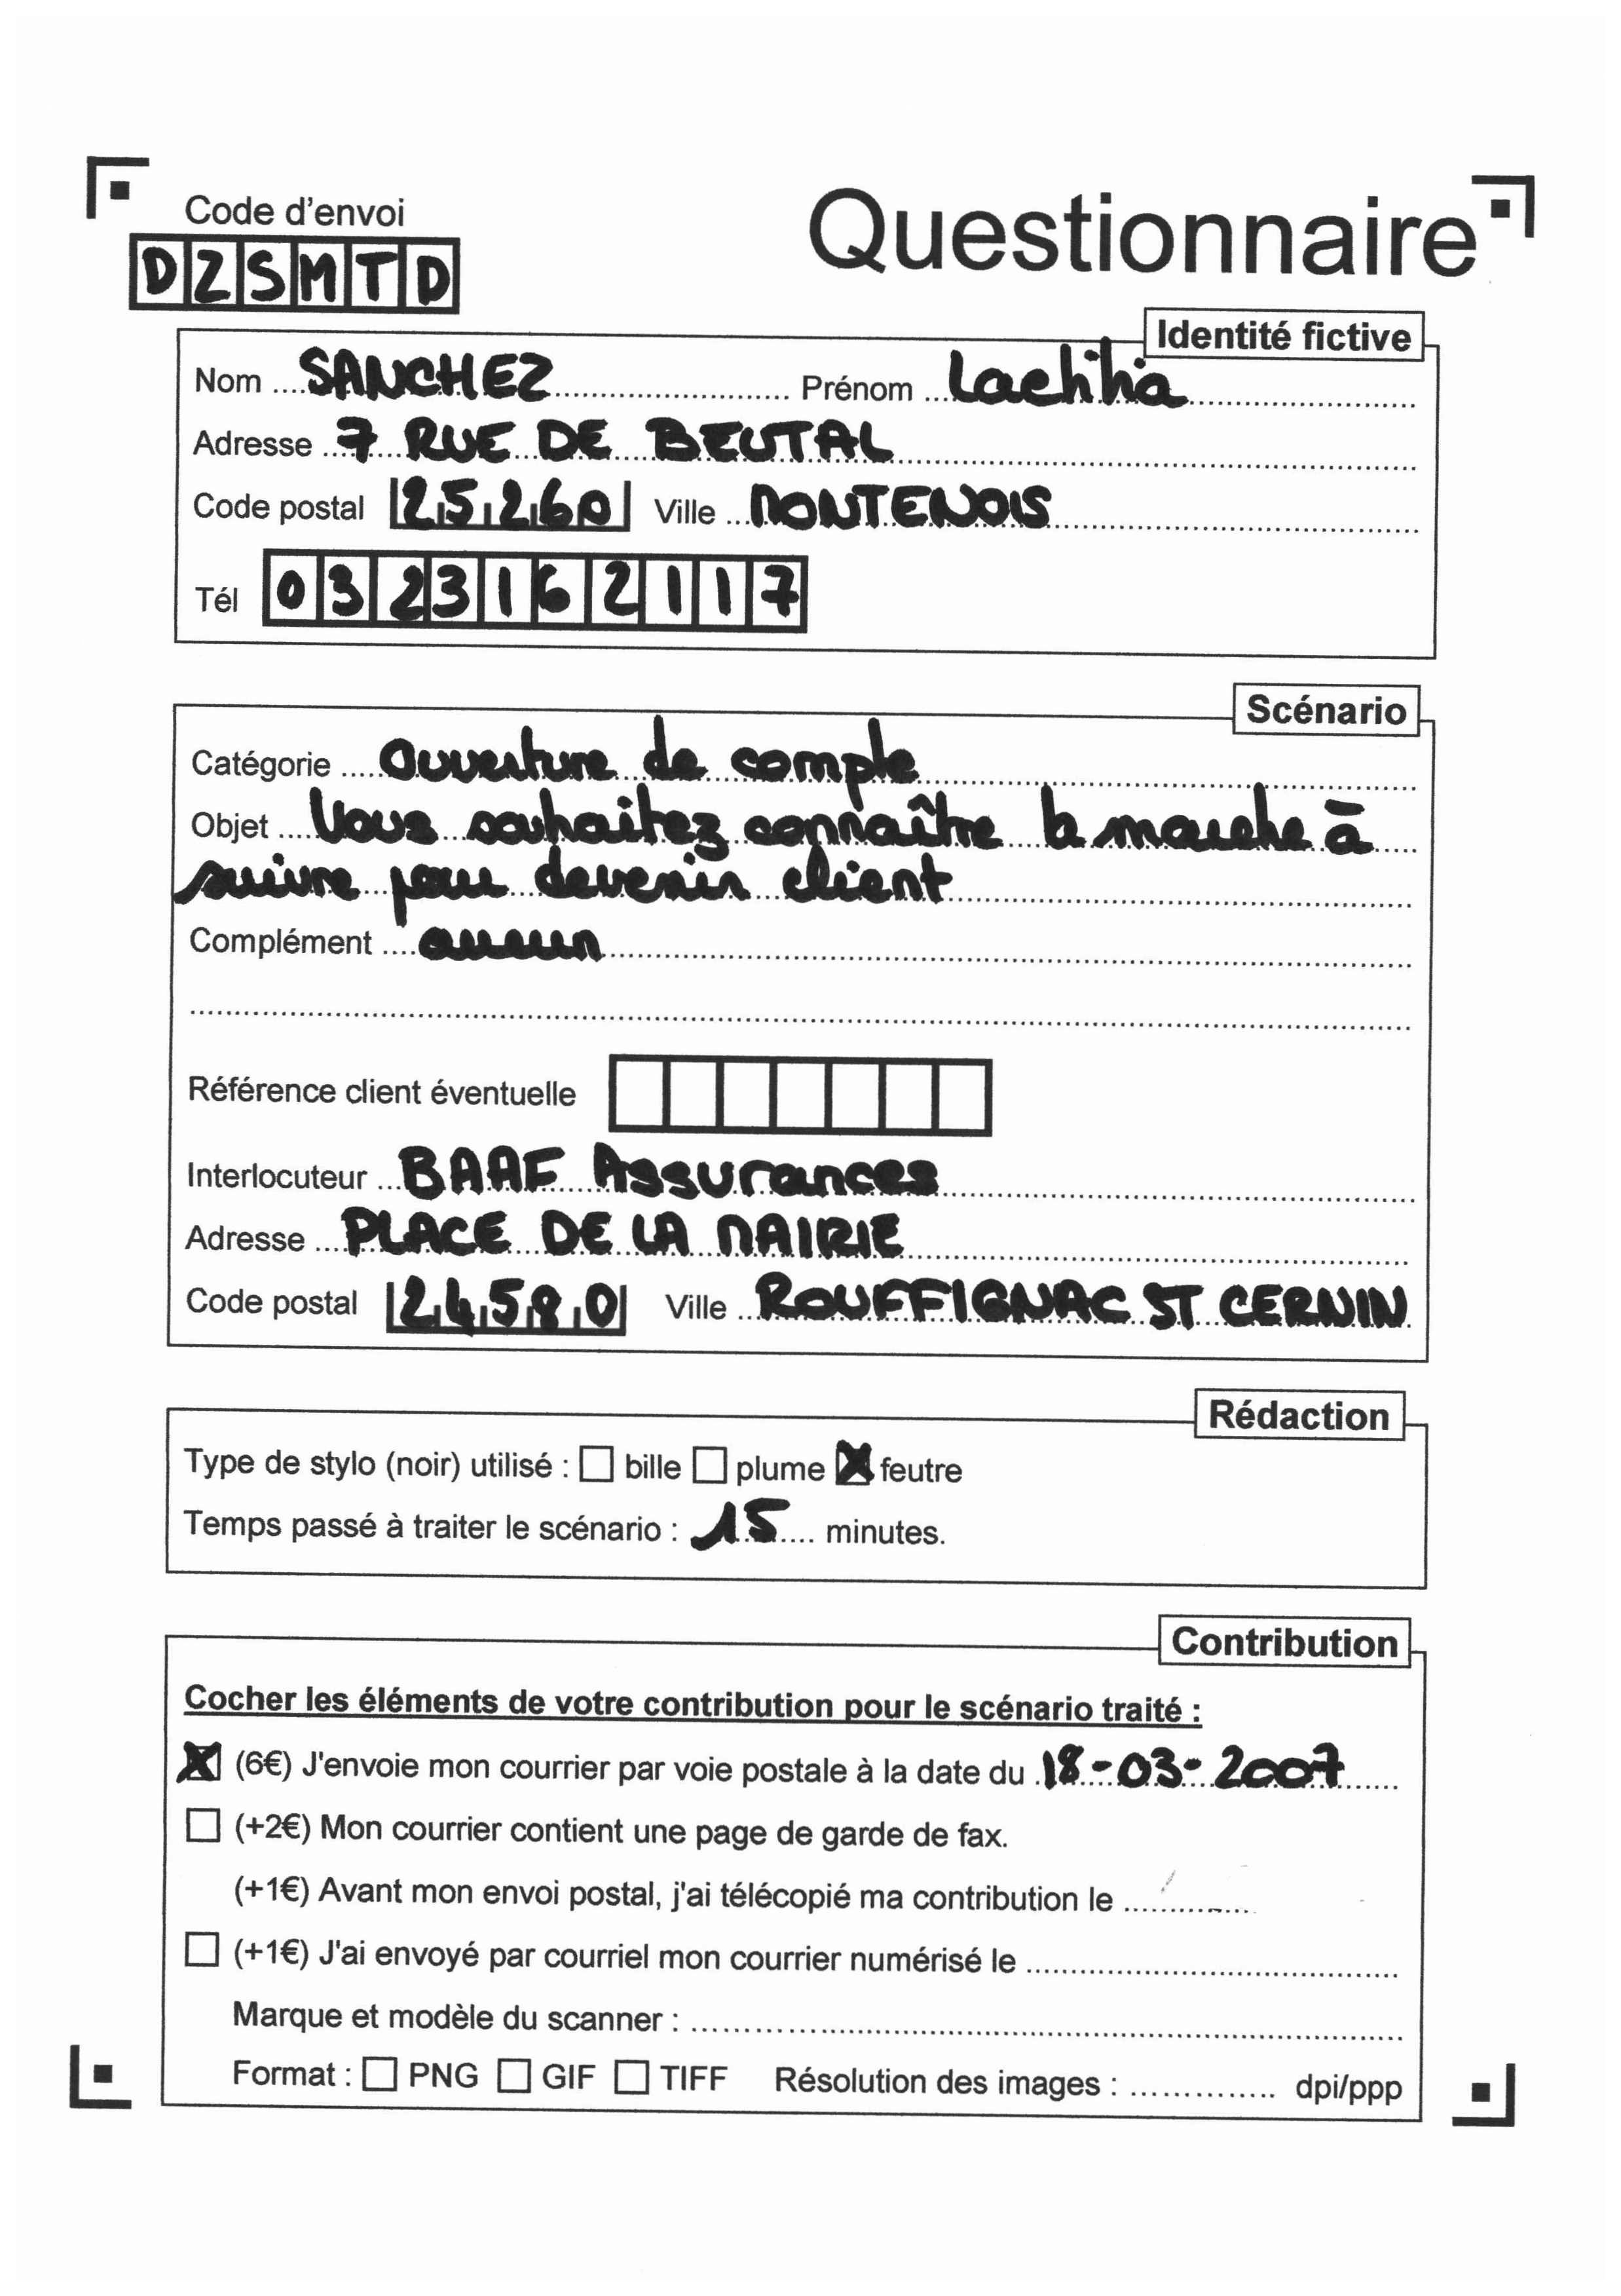 Code d'envoi
Questionnaire
DZSMTD
Identité fictive
Nom ....SANCHEZ.......................... Prénom ..Laetitia.......................
Adresse ..7 RUE DE BEUTAL..........................
Code postal 25260 Ville ..MONTENOIS..........................
Tél 0323162117
Scénario
Catégorie ....Ouverture de compte..........................
Objet ....Vous souhaitez connaître la marche à.....
suivre pour devenir client..........................
Complément ....aucun..........................
Référence client éventuelle
Interlocuteur ...BAAF Assurances..........................
Adresse ....PLACE DE LA MAIRIE..........................
Code postal 24580 Ville ..ROUFFIGNAC ST CERNIN
Rédaction
Type de stylo (noir) utilisé : ☐ bille ☐ plume ☒ feutre
Temps passé à traiter le scénario : 15.... minutes.
Contribution
Cocher les éléments de votre contribution pour le scénario traité :
☒ (6€) J'envoie mon courrier par voie postale à la date du .18-03-2007......
☐ (+2€) Mon courrier contient une page de garde de fax.
(+1€) Avant mon envoi postal, j'ai télécopié ma contribution le ..............
☐ (+1€) J'ai envoyé par courriel mon courrier numérisé le ..........................
Marque et modèle du scanner : ..........................
Format : ☐ PNG ☐ GIF ☐ TIFF Résolution des images : .............. dpi/ppp